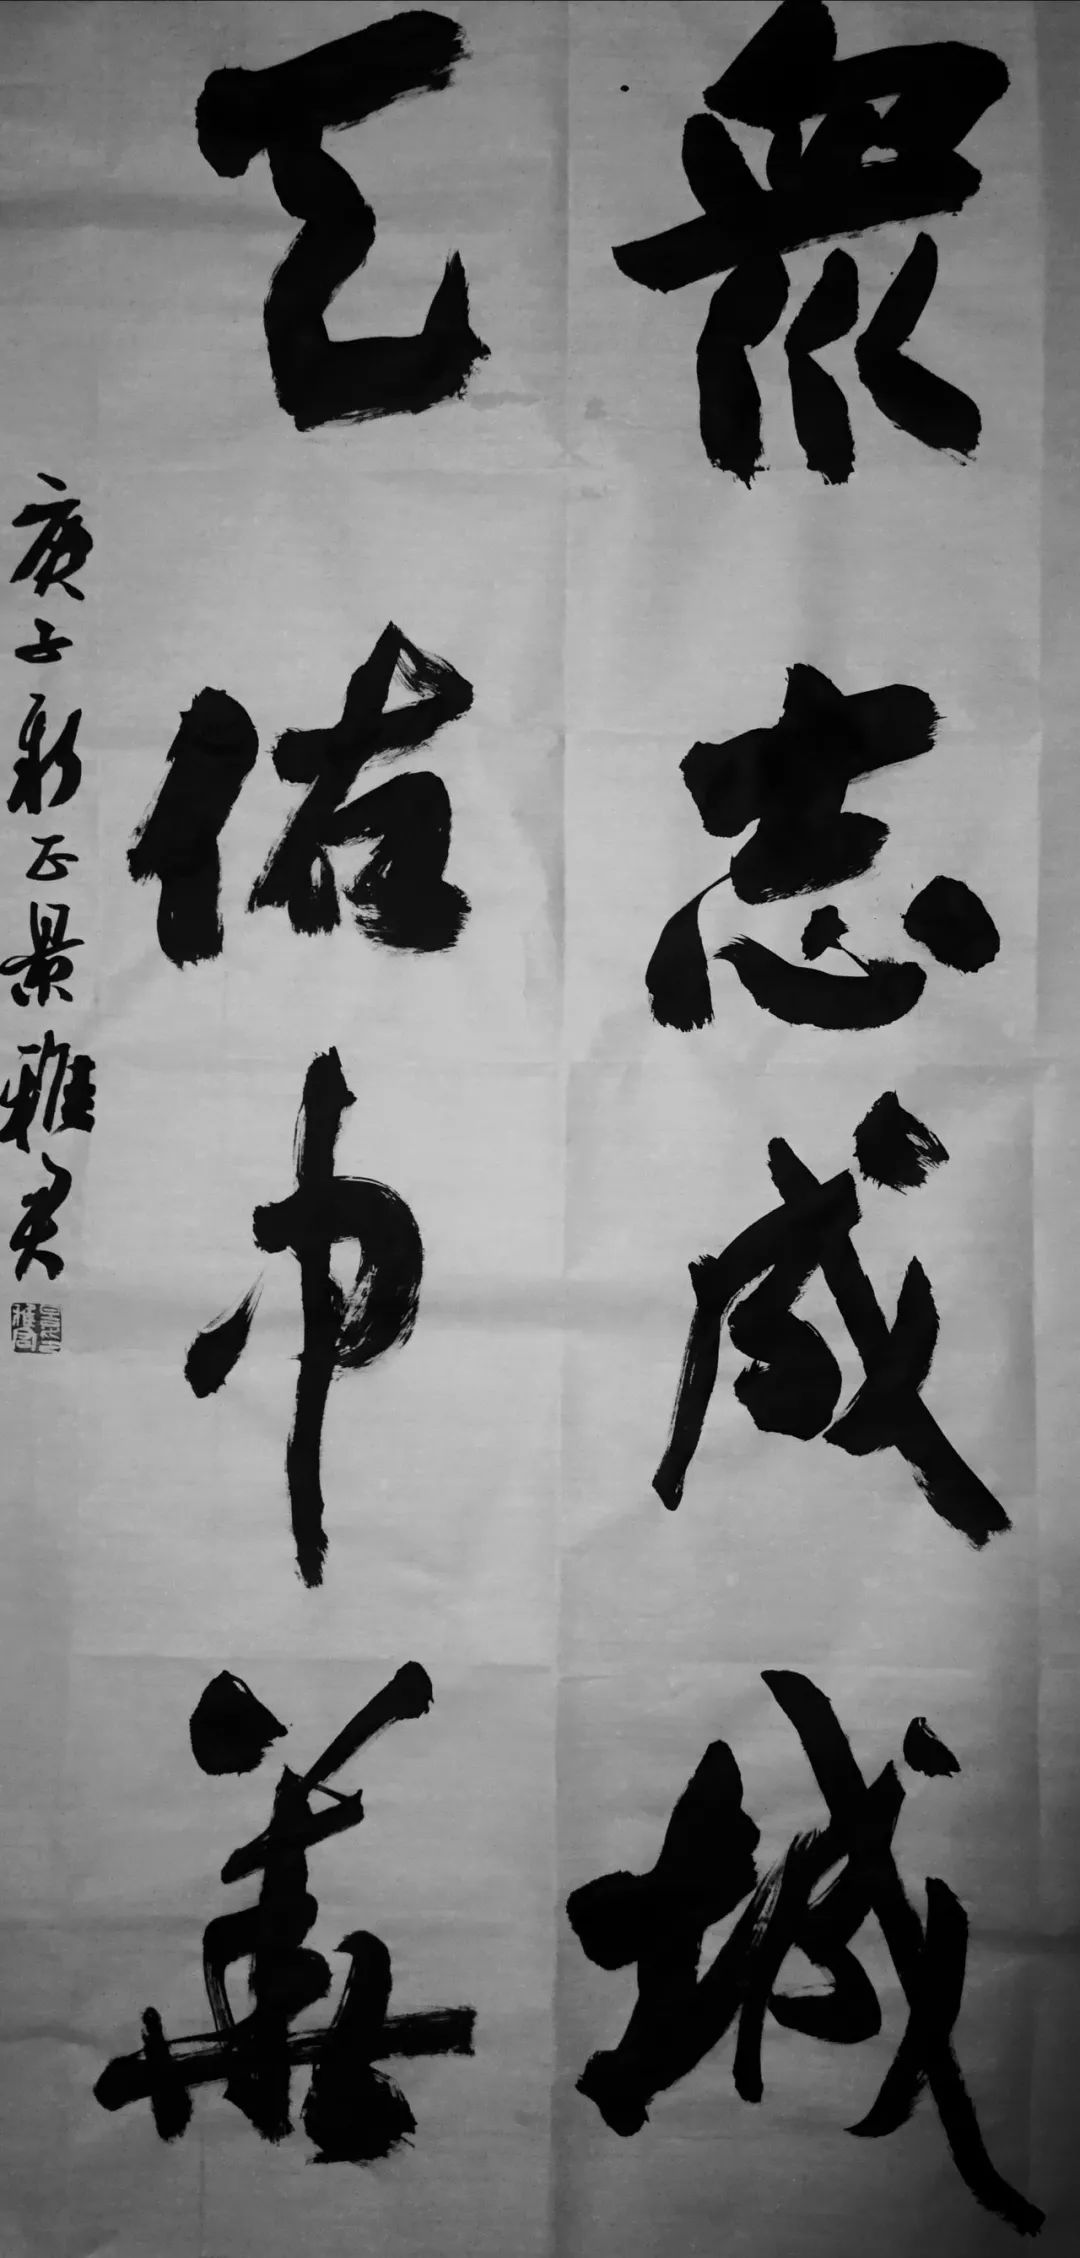 眾志成城
天佑中華
庚子新正景雅君